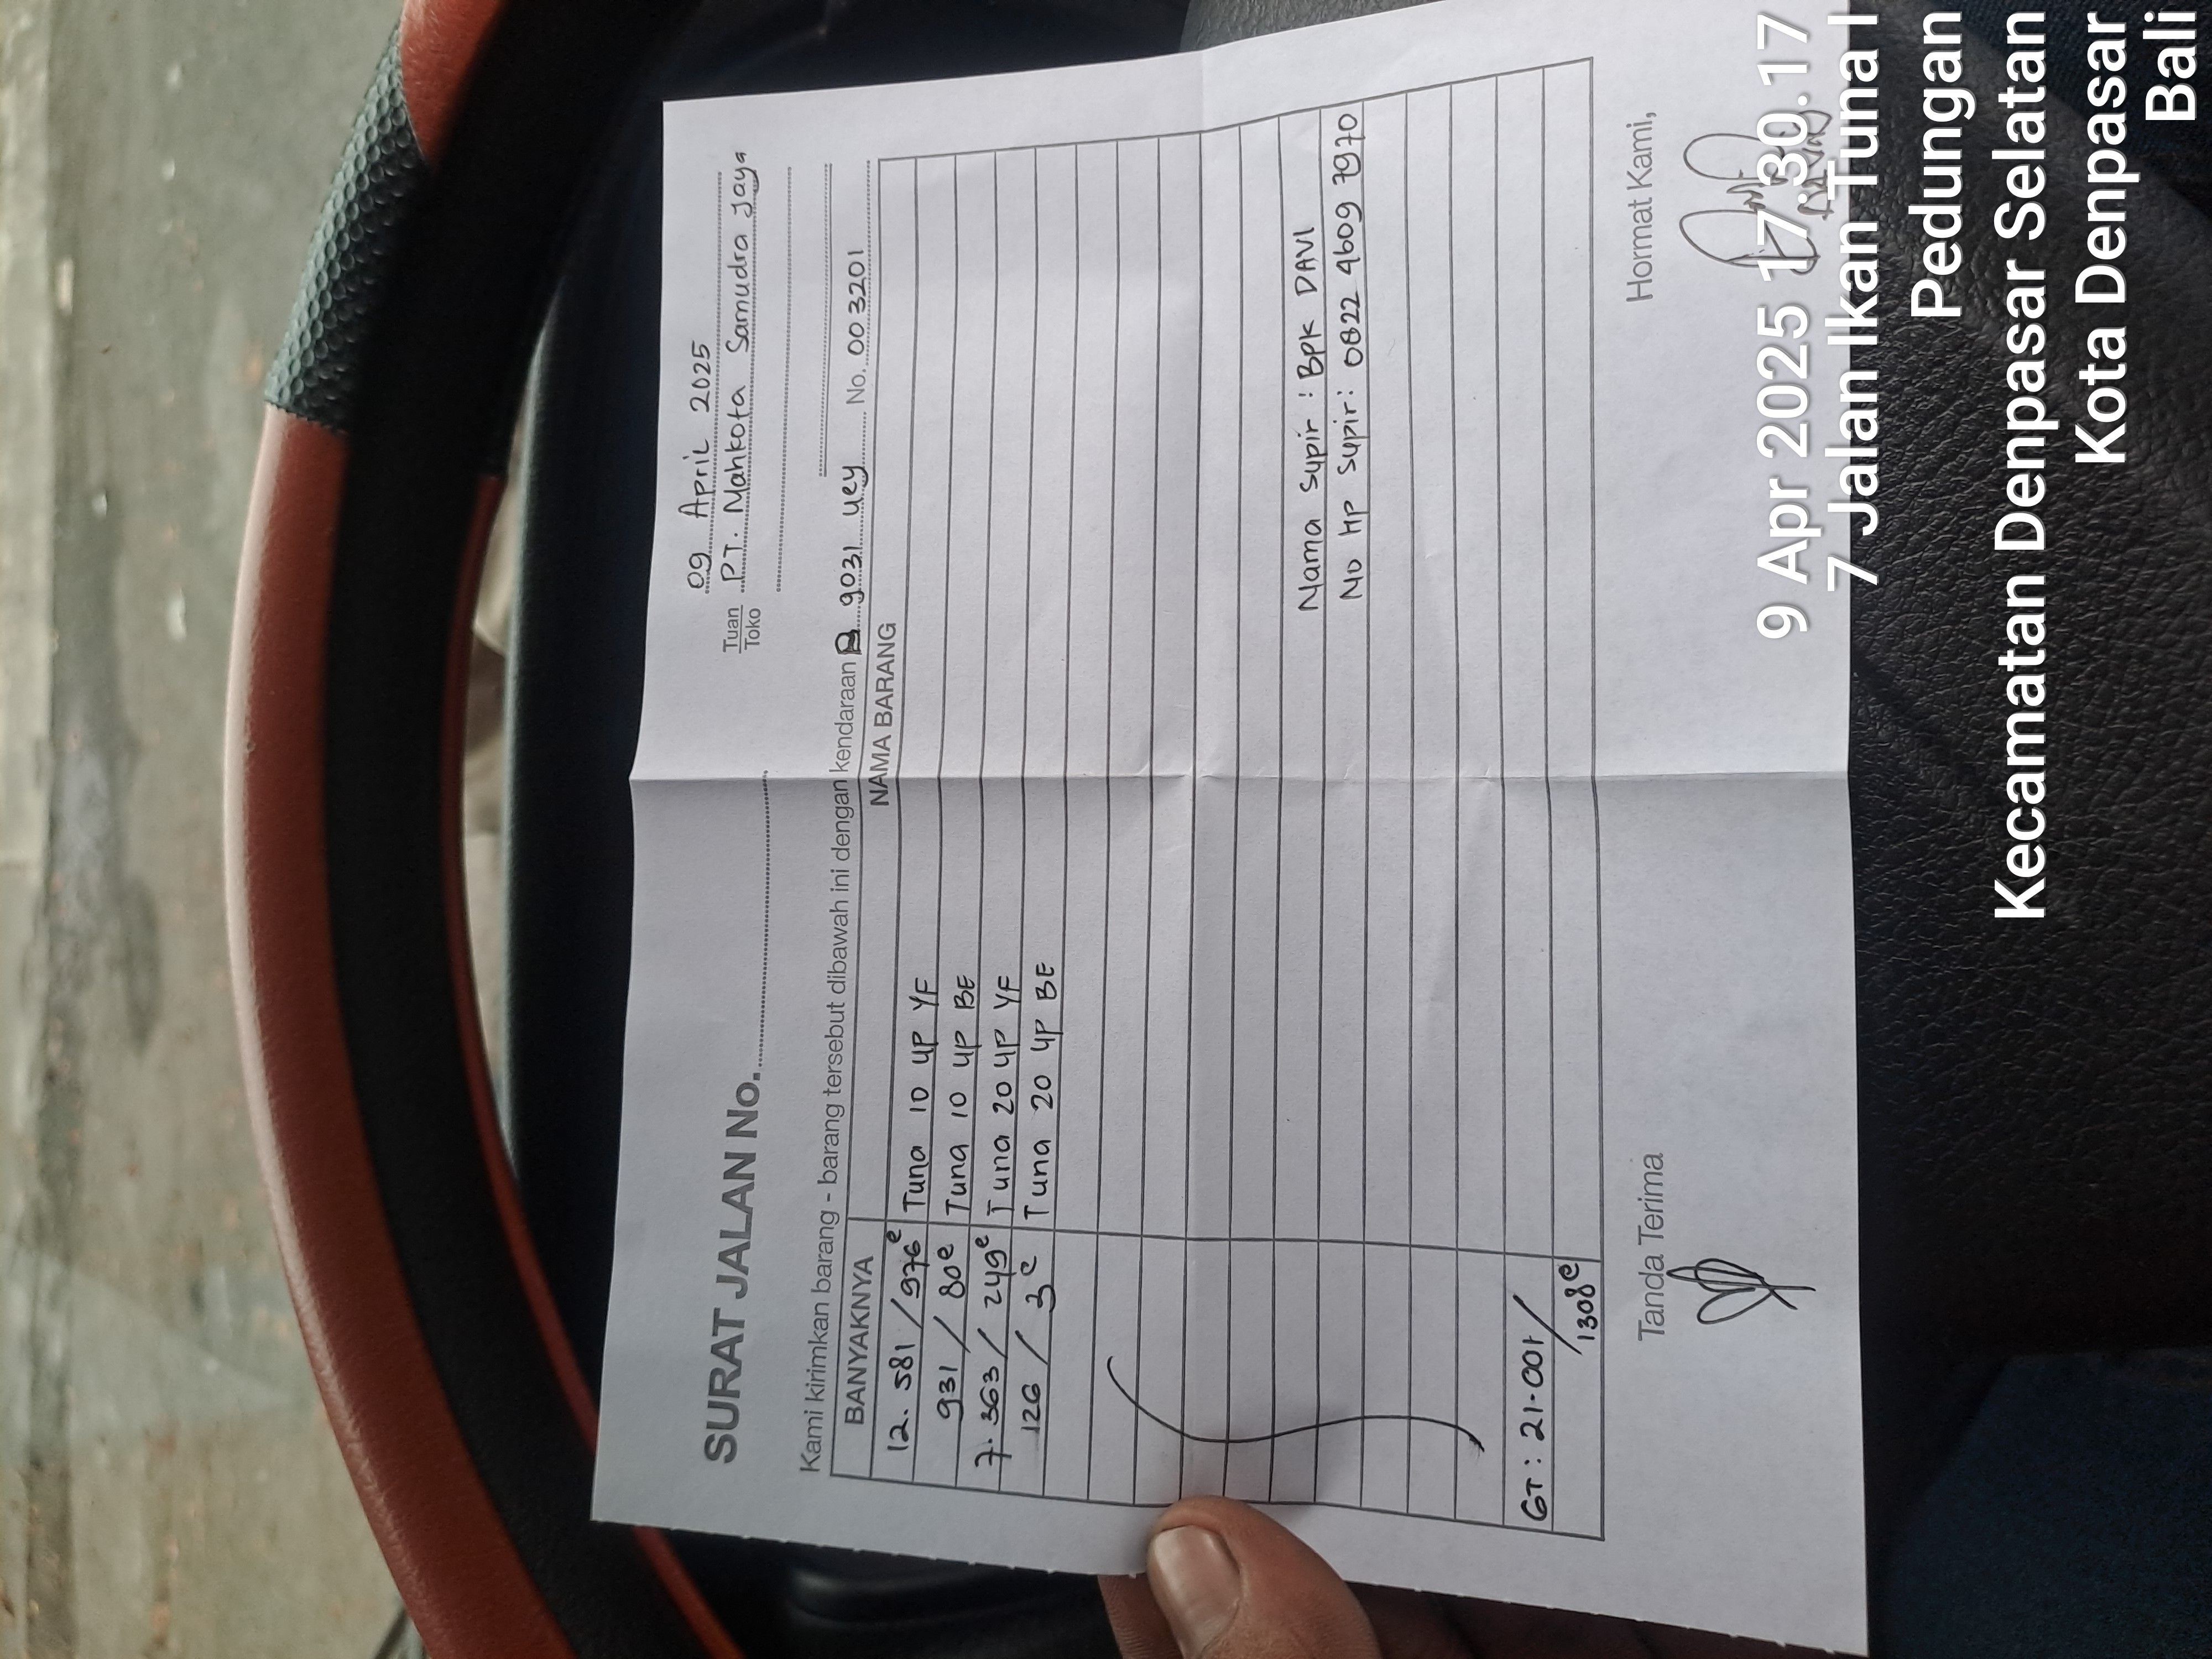 09 April 2025
SURAT JALAN No.
Tuan PT. Mahkota Samudra Jaya
Toko
Kami kirimkan barang - barang tersebut dibawah ini dengan kendaraan B 9031 UEY No. 003201
BANYAKNYA NAMA BARANG
12.581 / 976e Tuna 10 UP YF
931 / 80e Tuna 10 UP BE
7.363 / 249e Tuna 20 UP YF
126 / 3e Tuna 20 UP BE
Nama Supir : BPK DAVI
No HP Supir: 0822 4609 7970
GT : 21.001 /
1308e
Tanda Terima Hormat Kami,
9 Apr 2025 17.30.17
7 Jalan Ikan Tuna I
Pedungan
Kecamatan Denpasar Selatan
Kota Denpasar
Bali